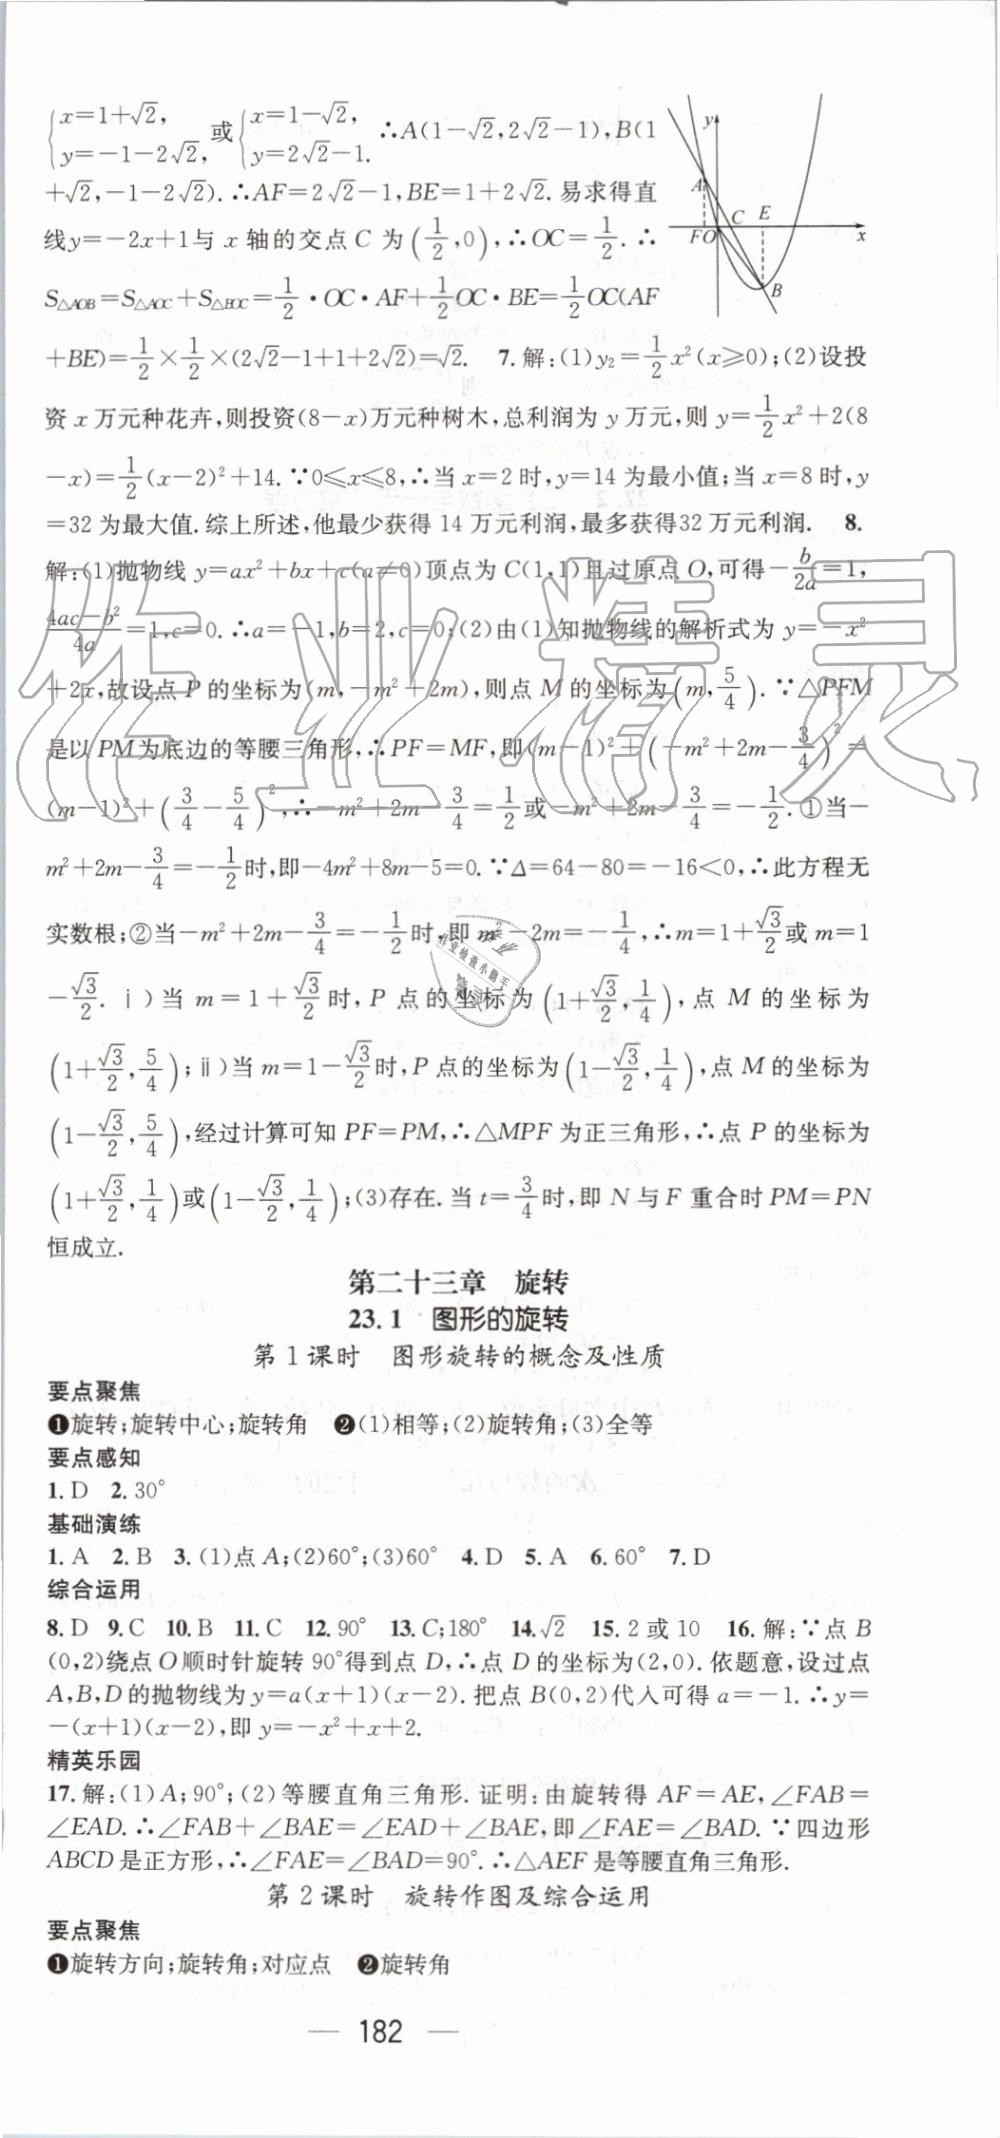 {x=1+√2, y=-1-2√2, 或 {x=1-√2, y=2√2-1. ∴A(1-√2,2√2-1),B(1
+√2,-1-2√2).∴AF=2√2-1,BE=1+2√2.易求得直
线y=-2x+1与 x 轴的交点 C 为(1/2,0),∴OC=1/2.∴
S△AOB=S△AOC+S△BOC=1/2·OC·AF+1/2OC·BE=1/2OC(AF
+BE)=1/2×1/2×(2√2-1+1+2√2)=√2. 7.解:(1)y₂=1/2x²(x≥0);(2)设投
资 x 万元种花卉,则投资(8-x)万元种树木,总利润为 y 万元,则 y=1/2x²+2(8
-x)=1/2(x-2)²+14.∵0≤x≤8,∴当 x=2 时,y=14 为最小值;当 x=8 时,y
=32 为最大值.综上所述,他最少获得 14 万元利润,最多获得32 万元利润. 8.
解:(1)抛物线 y=ax²+bx+c(a≠0)顶点为 C(1,1)且过原点 O,可得-b/2a=1,
(4ac-b²)/4a=1,c=0.∴a=-1,b=2,c=0;(2)由(1)知抛物线的解析式为 y=-x²
+2x,故设点 P 的坐标为(m,-m²+2m),则点 M 的坐标为(m,5/4).∵△PFM
是以 PM为底边的等腰三角形,∴PF=MF,即(m-1)²+(-m²+2m-3/4)²=
(m-1)²+(3/4-5/4)²,∴-m²+2m-3/4=1/2或-m²+2m-3/4=-1/2.①当-
m²+2m-3/4=-1/2时,即-4m²+8m-5=0.∵Δ=64-80=-16<0,∴此方程无
实数根;②当-m²+2m-3/4=-1/2时,即 m²-2m=-1/4,∴m=1+√3/2或 m=1
-√3/2.ⅰ)当 m=1+√3/2时,P 点的坐标为(1+√3/2,1/4),点 M 的坐标为
(1+√3/2,5/4);ⅱ)当 m=1-√3/2时,P 点的坐标为(1-√3/2,1/4),点 M 的坐标为
(1-√3/2,5/4),经过计算可知 PF=PM,∴△MPF 为正三角形,∴点 P 的坐标为
(1+√3/2,1/4)或(1-√3/2,1/4);(3)存在.当 t=3/4时,即 N 与 F 重合时 PM=PN
恒成立.
y
A
C
E
F
O
x
B
第二十三章 旋转
23.1 图形的旋转
第 1 课时 图形旋转的概念及性质
要点聚焦
❶旋转;旋转中心;旋转角 ❷(1)相等;(2)旋转角;(3)全等
要点感知
1.D 2.30°
基础演练
1.A 2.B 3.(1)点 A;(2)60°;(3)60° 4.D 5.A 6.60° 7.D
综合运用
8.D 9.C 10.B 11.C 12.90° 13.C;180° 14.√2 15.2 或 10 16.解:∵点 B
(0,2)绕点 O顺时针旋转 90°得到点 D,∴点 D 的坐标为(2,0).依题意,设过点
A,B,D 的抛物线为 y=a(x+1)(x-2).把点 B(0,2)代入可得 a=-1.∴y=
-(x+1)(x-2),即 y=-x²+x+2.
精英乐园
17.解:(1)A;90°;(2)等腰直角三角形.证明:由旋转得 AF=AE,∠FAB=
∠EAD.∴∠FAB+∠BAE=∠EAD+∠BAE,即∠FAE=∠BAD.∵四边形
ABCD 是正方形,∴∠FAE=∠BAD=90°.∴△AEF 是等腰直角三角形.
第 2 课时 旋转作图及综合运用
要点聚焦
❶旋转方向;旋转角;对应点 ❷旋转角
— 182 —
作业精灵
作业检查小助手